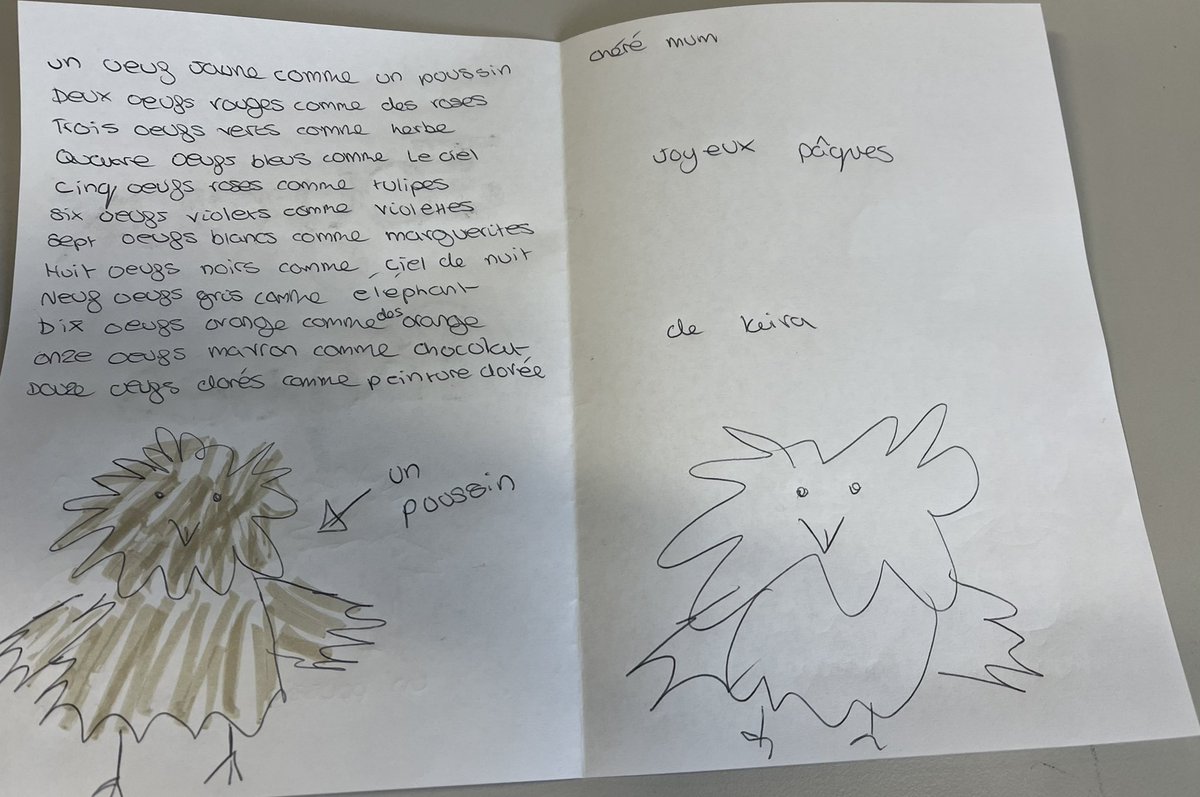 un oeuf jaune comme un poussin
Deux oeufs rouges comme des roses
Trois oeufs verts comme herbe
Quatre oeufs bleus comme le ciel
cinq oeufs roses comme tulipes
six oeufs violets comme violettes
sept oeufs blancs comme marguerites
Huit oeufs noirs comme ciel de nuit
Neuf oeufs gris comme eléphant
Dix oeufs orange comme des orange
onze oeufs marron comme chocolat
Douze oeufs dorés comme peinture dorée
un
poussin
chéré mum
Joyeux pâques
de Keira